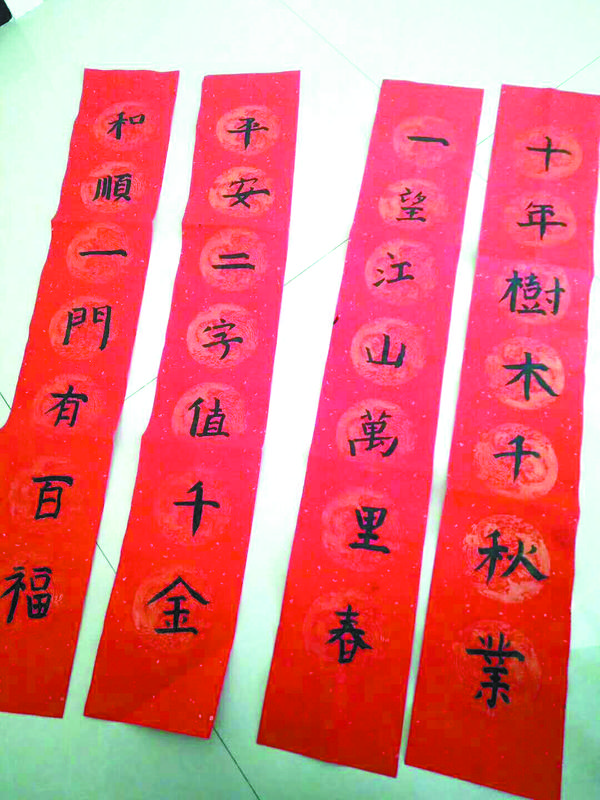 十年樹木千秋業
一望江山萬里春
平安二字值千金
和順一門有百福